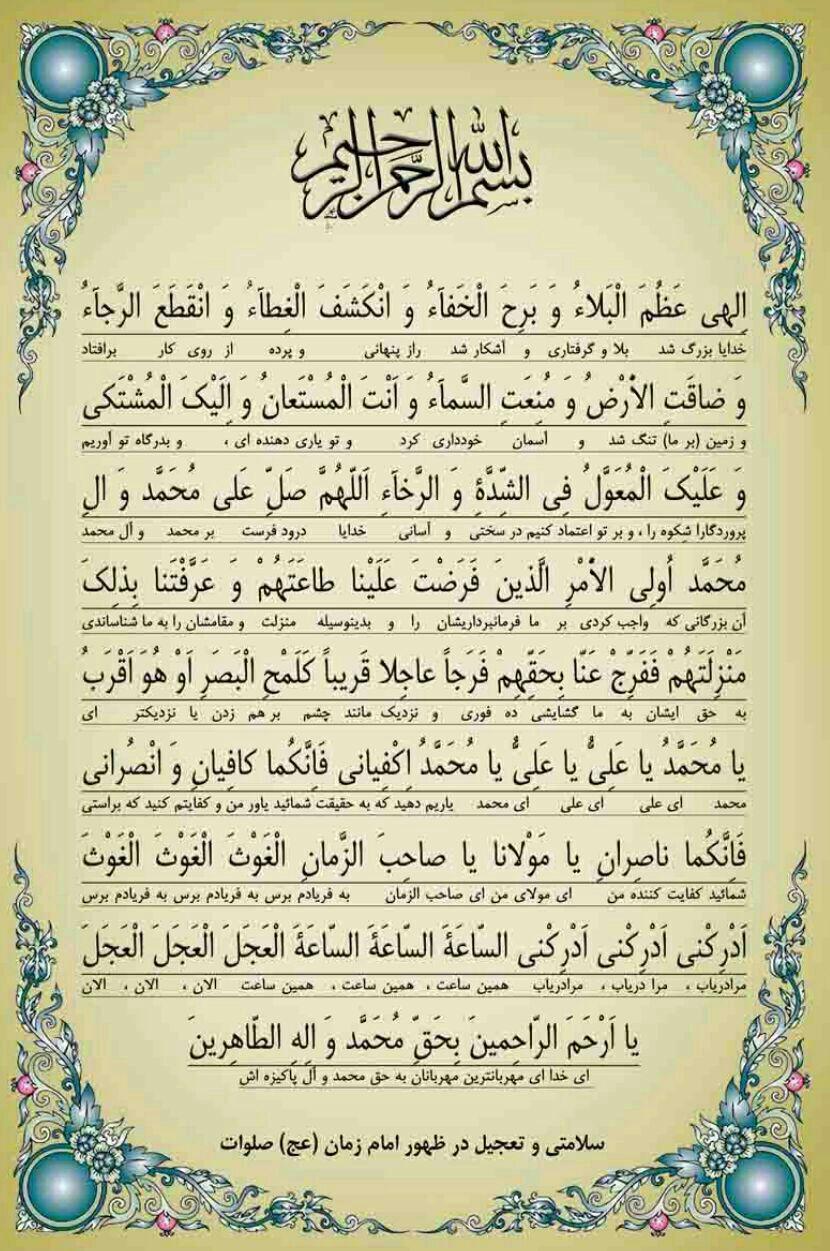 بسم الله الرحمن الرحیم
اِلهی عَظُمَ الْبَلاءُ وَ بَرِحَ الْخَفآءُ وَ انْکَشَفَ الْغِطآءُ وَ انْقَطَعَ الرَّجآءُ
خدایا بزرگ شد بلا و گرفتاری و آشکار شد راز پنهانی و پرده از روی کار برافتاد
وَ ضاقَتِ الاَْرْضُ وَ مُنِعَتِ السَّمآءُ وَ اَنْتَ الْمُسْتَعانُ وَ اِلَیْکَ الْمُشْتَکی
و زمین (بر ما) تنگ شد و آسمان خودداری کرد و تو یاری دهنده ای ، و بدرگاه تو آوریم
وَ عَلَیْکَ الْمُعَوَّلُ فِی الشِّدَّةِ وَ الرَّخآءِ اَللّهُمَّ صَلِّ عَلی مُحَمَّد وَ الِ
پروردگارا شکوه را ، و بر تو اعتماد کنیم در سختی و آسانی خدایا درود فرست بر محمد و آل محمد
مُحَمَّد اُولِی الاَْمْرِ الَّذینَ فَرَضْتَ عَلَیْنا طاعَتَهُمْ وَ عَرَّفْتَنا بِذلِکَ
آن بزرگانی که واجب کردی بر ما فرمانبرداریشان را و بدینوسیله منزلت و مقامشان را به ما شناساندی
مَنْزِلَتَهُمْ فَفَرِّجْ عَنّا بِحَقِّهِمْ فَرَجاً عاجِلا قَریباً کَلَمْحِ الْبَصَرِ اَوْ هُوَ اَقْرَبُ
به حق ایشان به ما گشایشی ده فوری و نزدیک مانند چشم بر هم زدن یا نزدیکتر ای
یا مُحَمَّدُ یا عَلِیُّ یا عَلِیُّ یا مُحَمَّدُ اِکْفِیانی فَاِنَّکُما کافِیانِ وَ انْصُرانی
محمد ای علی ای علی ای محمد یاریم دهید که به حقیقت شمائید یاور من و کفایتم کنید که براستی
فَاِنَّکُما ناصِرانِ یا مَوْلانا یا صاحِبَ الزَّمانِ الْغَوْثَ الْغَوْثَ الْغَوْثَ
شمائید کفایت کننده من ای مولای من ای صاحب الزمان به فریادم برس به فریادم برس به فریادم برس
اَدْرِکْنی اَدْرِکْنی اَدْرِکْنی السّاعَةَ السّاعَةَ السّاعَةَ الْعَجَلَ الْعَجَلَ الْعَجَلَ
مرادریاب ، مرا دریاب ، مرادریاب همین ساعت ، همین ساعت ، همین ساعت الان ، الان ، الان
یا اَرْحَمَ الرّاحِمینَ بِحَقِّ مُحَمَّد وَ الِهِ الطّاهِرینَ
ای خدا ای مهربانترین مهربانان به حق محمد و آل پاکیزه اش
سلامتی و تعجیل در ظهور امام زمان (عج) صلوات